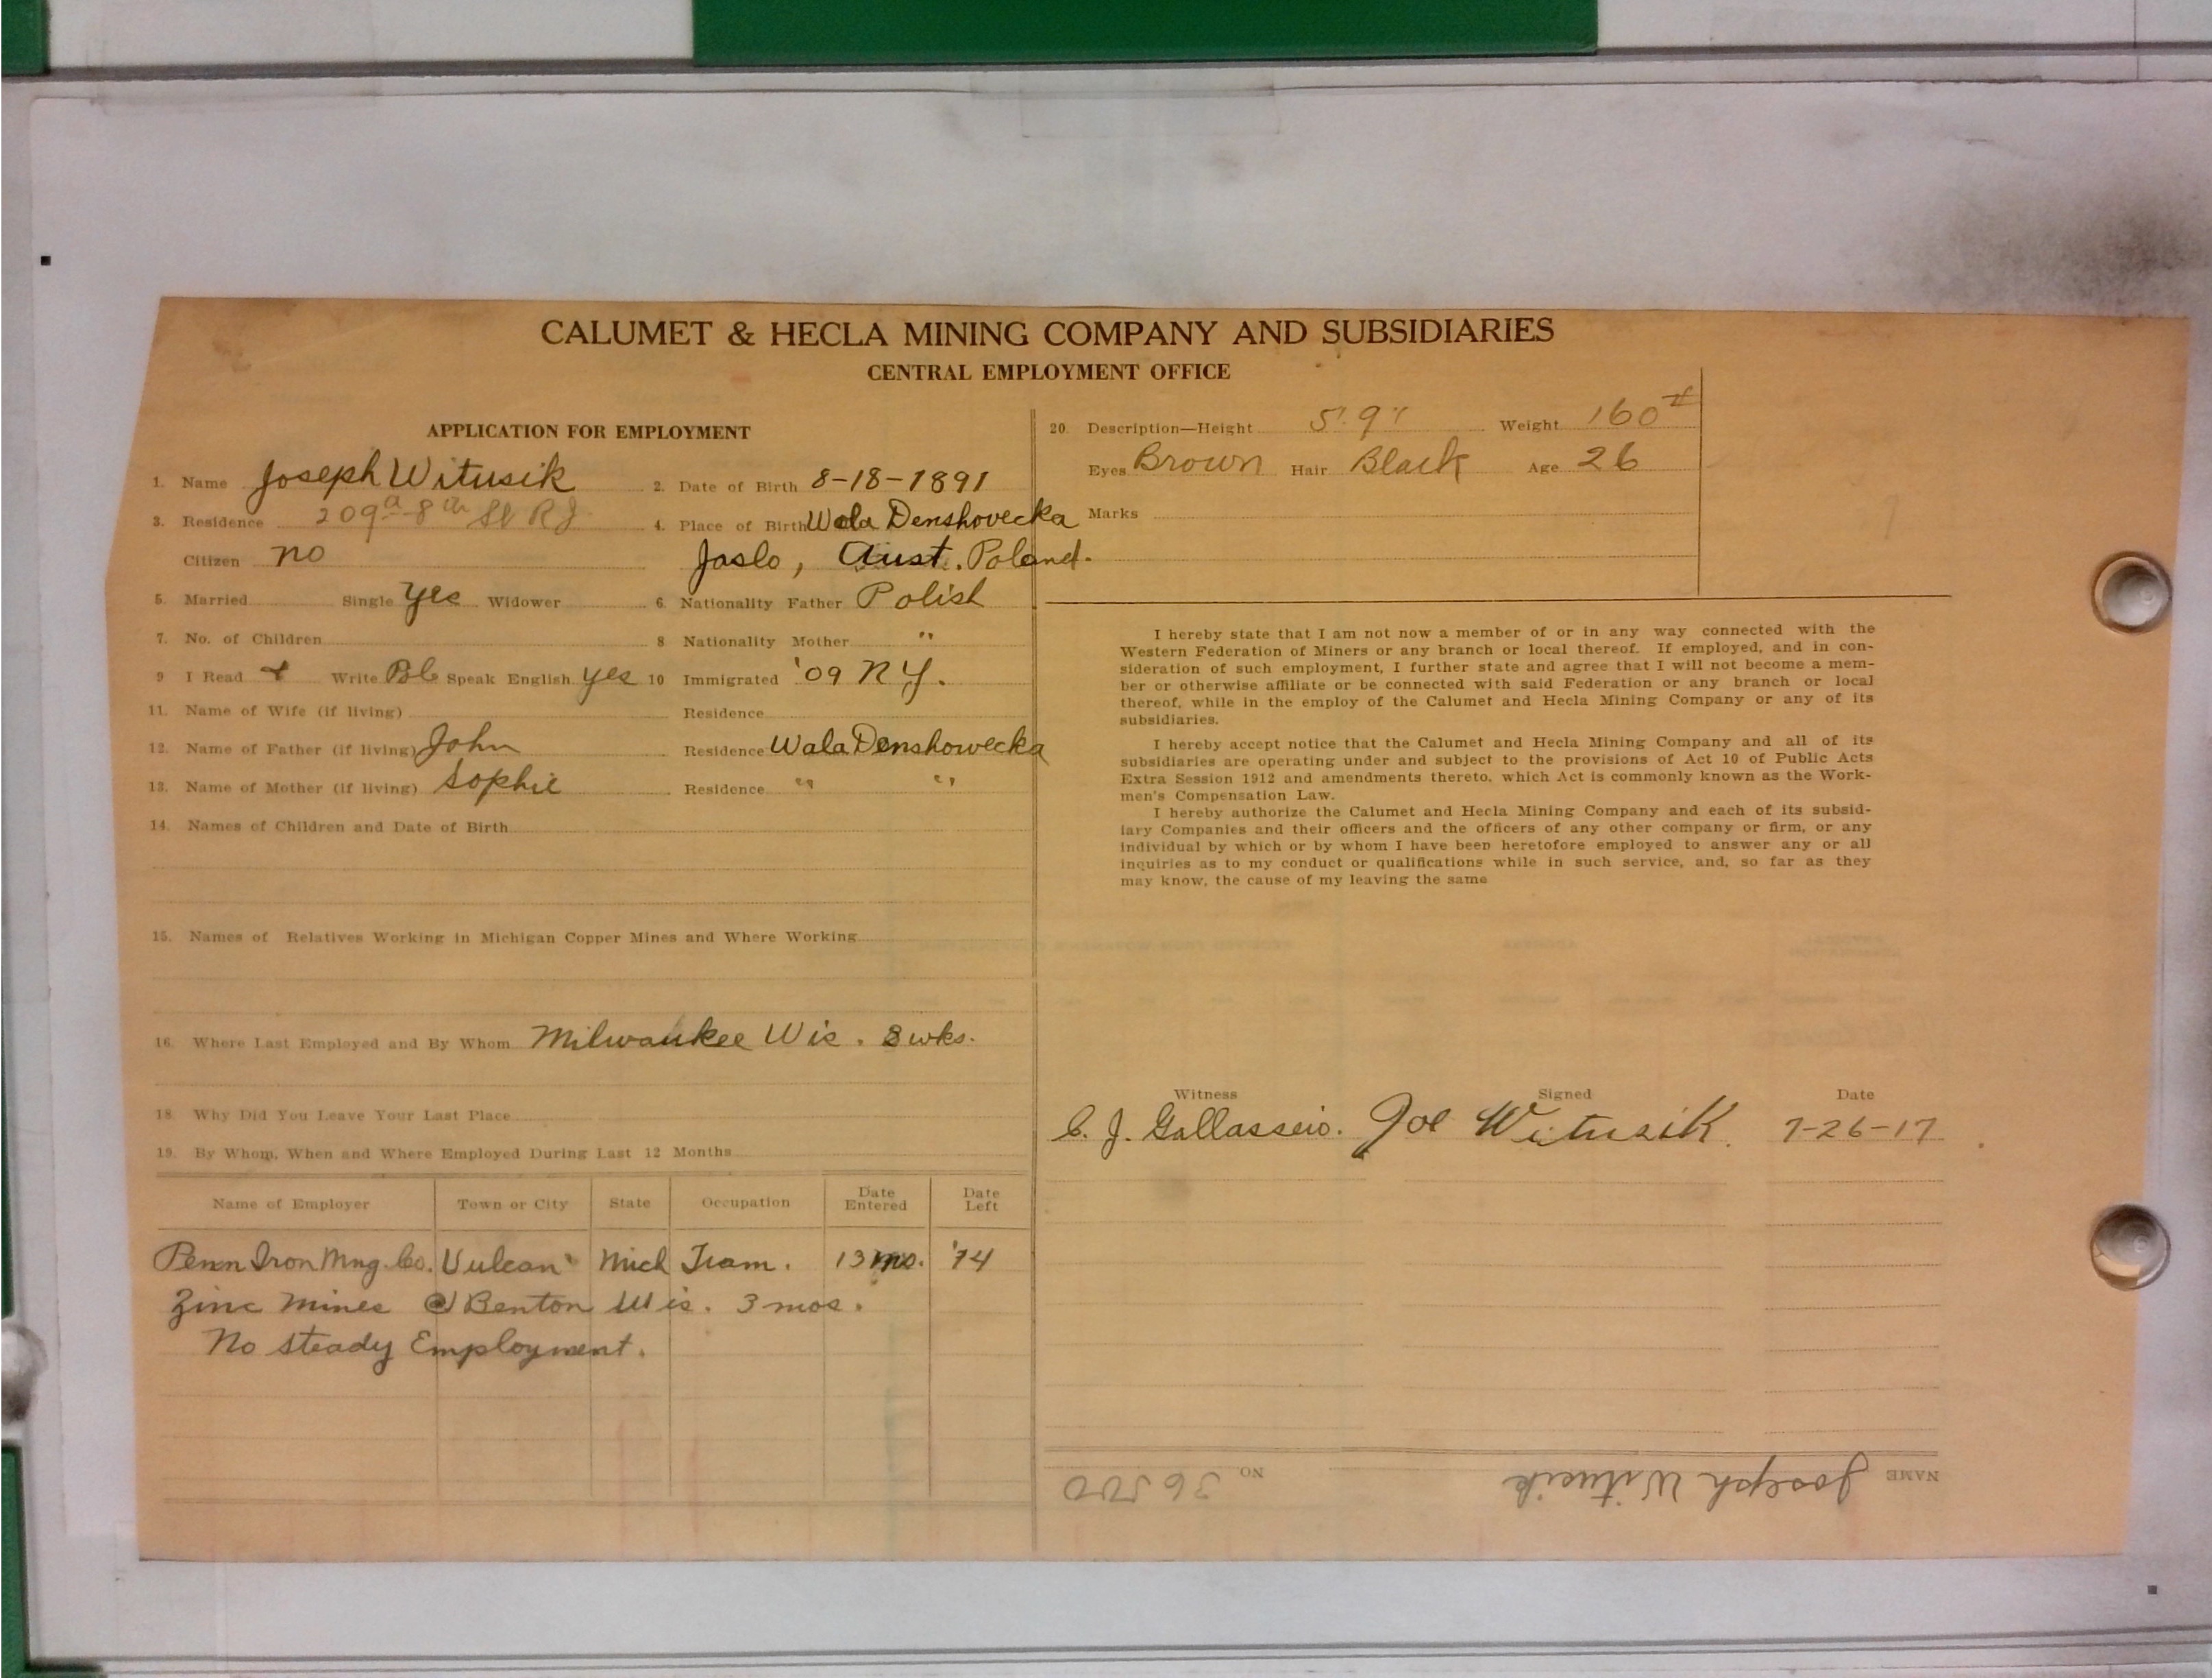 CALUMET & HECLA MINING COMPANY AND SUBSIDIARIES
CENTRAL EMPLOYMENT OFFICE
APPLICATION FOR EMPLOYMENT
1. Name Joseph Witusik 2. Date of Birth 8-18-1891
3. Residence 209 8th St 4. Place of Birth Wola Denshovecka
Citizen no Jaslo, Aust. Poland.
5. Married Single yes Widower 6. Nationality Father Polish
7. No. of Children 8 Nationality Mother "
9 I Read + Write Speak English yes 10 Immigrated '09 N Y.
11. Name of Wife (if living) Residence
12. Name of Father (if living) John Residence Wala Denshowecka
13. Name of Mother (if living) Sophie Residence " "
14. Names of Children and Date of Birth
15. Names of Relatives Working in Michigan Copper Mines and Where Working
16. Where Last Employed and By Whom Milwaukee Wis. 8 wks.
18. Why Did You Leave Your Last Place
19. By Whom, When and Where Employed During Last 12 Months
Name of Employer Town or City State Occupation Date Entered Date Left
Penn Iron Mng. Co. Vulcan Mich Tram. 13 mo. '14
Zinc Mines @ Benton Wis. 3 mos.
No steady Employment.
20. Description—Height 5' 9" Weight 160#
Eyes Brown Hair Black Age 26
Marks
I hereby state that I am not now a member of or in any way connected with the
Western Federation of Miners or any branch or local thereof. If employed, and in con-
sideration of such employment, I further state and agree that I will not become a mem-
ber or otherwise affiliate or be connected with said Federation or any branch or local
thereof, while in the employ of the Calumet and Hecla Mining Company or any of its
subsidiaries.
I hereby accept notice that the Calumet and Hecla Mining Company and all of its
subsidiaries are operating under and subject to the provisions of Act 10 of Public Acts
Extra Session 1912 and amendments thereto, which Act is commonly known as the Work-
men's Compensation Law.
I hereby authorize the Calumet and Hecla Mining Company and each of its subsid-
iary Companies and their officers and the officers of any other company or firm, or any
individual by which or by whom I have been heretofore employed to answer any or all
inquiries as to my conduct or qualifications while in such service, and, so far as they
may know, the cause of my leaving the same
Witness Signed Date
C. J. Gallasseio. Joe Witusik 7-26-17
NAME Joseph Witusik NO. 36500